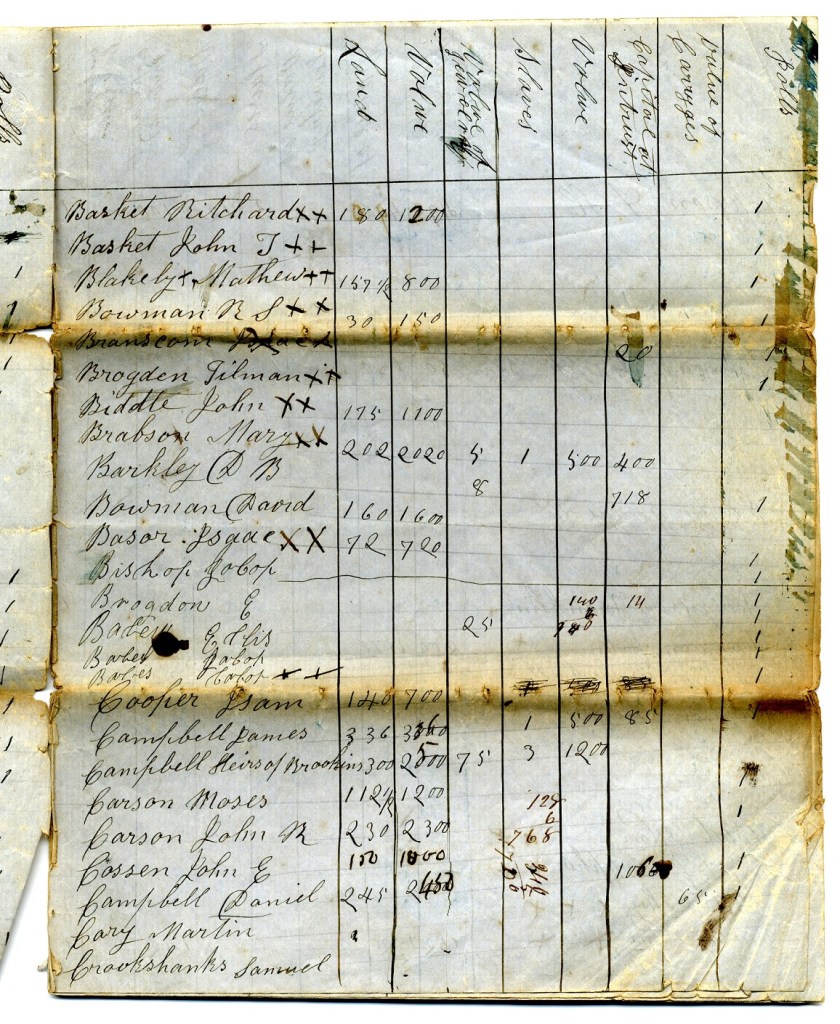 Polls
Land Value Value of Slaves Value Capital at Intrust Value of Carryges Polls
Basket Ritchard ++ 180 1200 1
Basket John T ++ 1
Blakely + Mathew ++ 157 1/2 800 1
Bowman R S ++ 30 150 1
Branscom Isaac 20 1
Brogden Tilman ++ 1
Biddle John ++ 175 1100
Brabson Mary xx 202 2020 5 1 500 400
Barkley D B 8 718
Bowman David 160 1600 1
Basor Isaac XX 72 720
Bishop Jobop 1
Brogdon E 140 14 1
Ellis 25 1
Jobop 1
++ 1
Cooper Isam 140 700 1
Campbell James 336 1 500 85
Campbell Heirs of Brookins 300 2500 75 3 1200
Carson Moses 112 1/2 1200 128 1
6
Carson John R 230 2300 768
Cossen John E 100 1000 1060 1
Campbell Daniel 245 2450 65 1
Cary Martin
Crookshanks Samuel